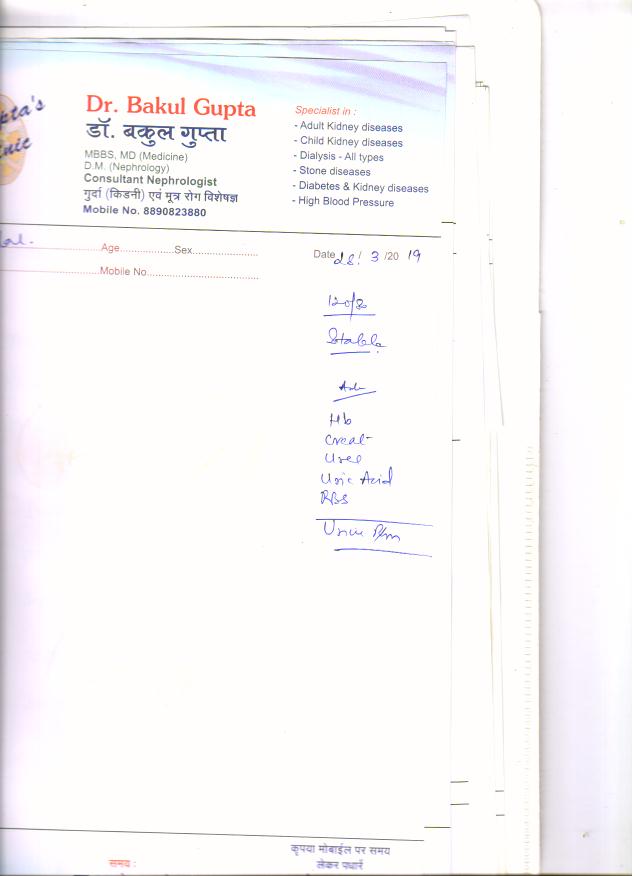 Dr. Bakul Gupta
डॉ. बकुल गुप्ता
MBBS, MD (Medicine)
D.M. (Nephrology)
Consultant Nephrologist
गुर्दा (किडनी) एवं मूत्र रोग विशेषज्ञ
Mobile No. 8890823880
Specialist in :
- Adult Kidney diseases
- Child Kidney diseases
- Dialysis - All types
- Stone diseases
- Diabetes & Kidney diseases
- High Blood Pressure
Age..................Sex.....................
Date 28/ 3 /20 19
Mobile No....................................
120/8
Stable
Hb
Creat
Urea
Uric Acid
RBS
Urine R/m
समय :
कृपया मोबाईल पर समय
लेकर पधारें